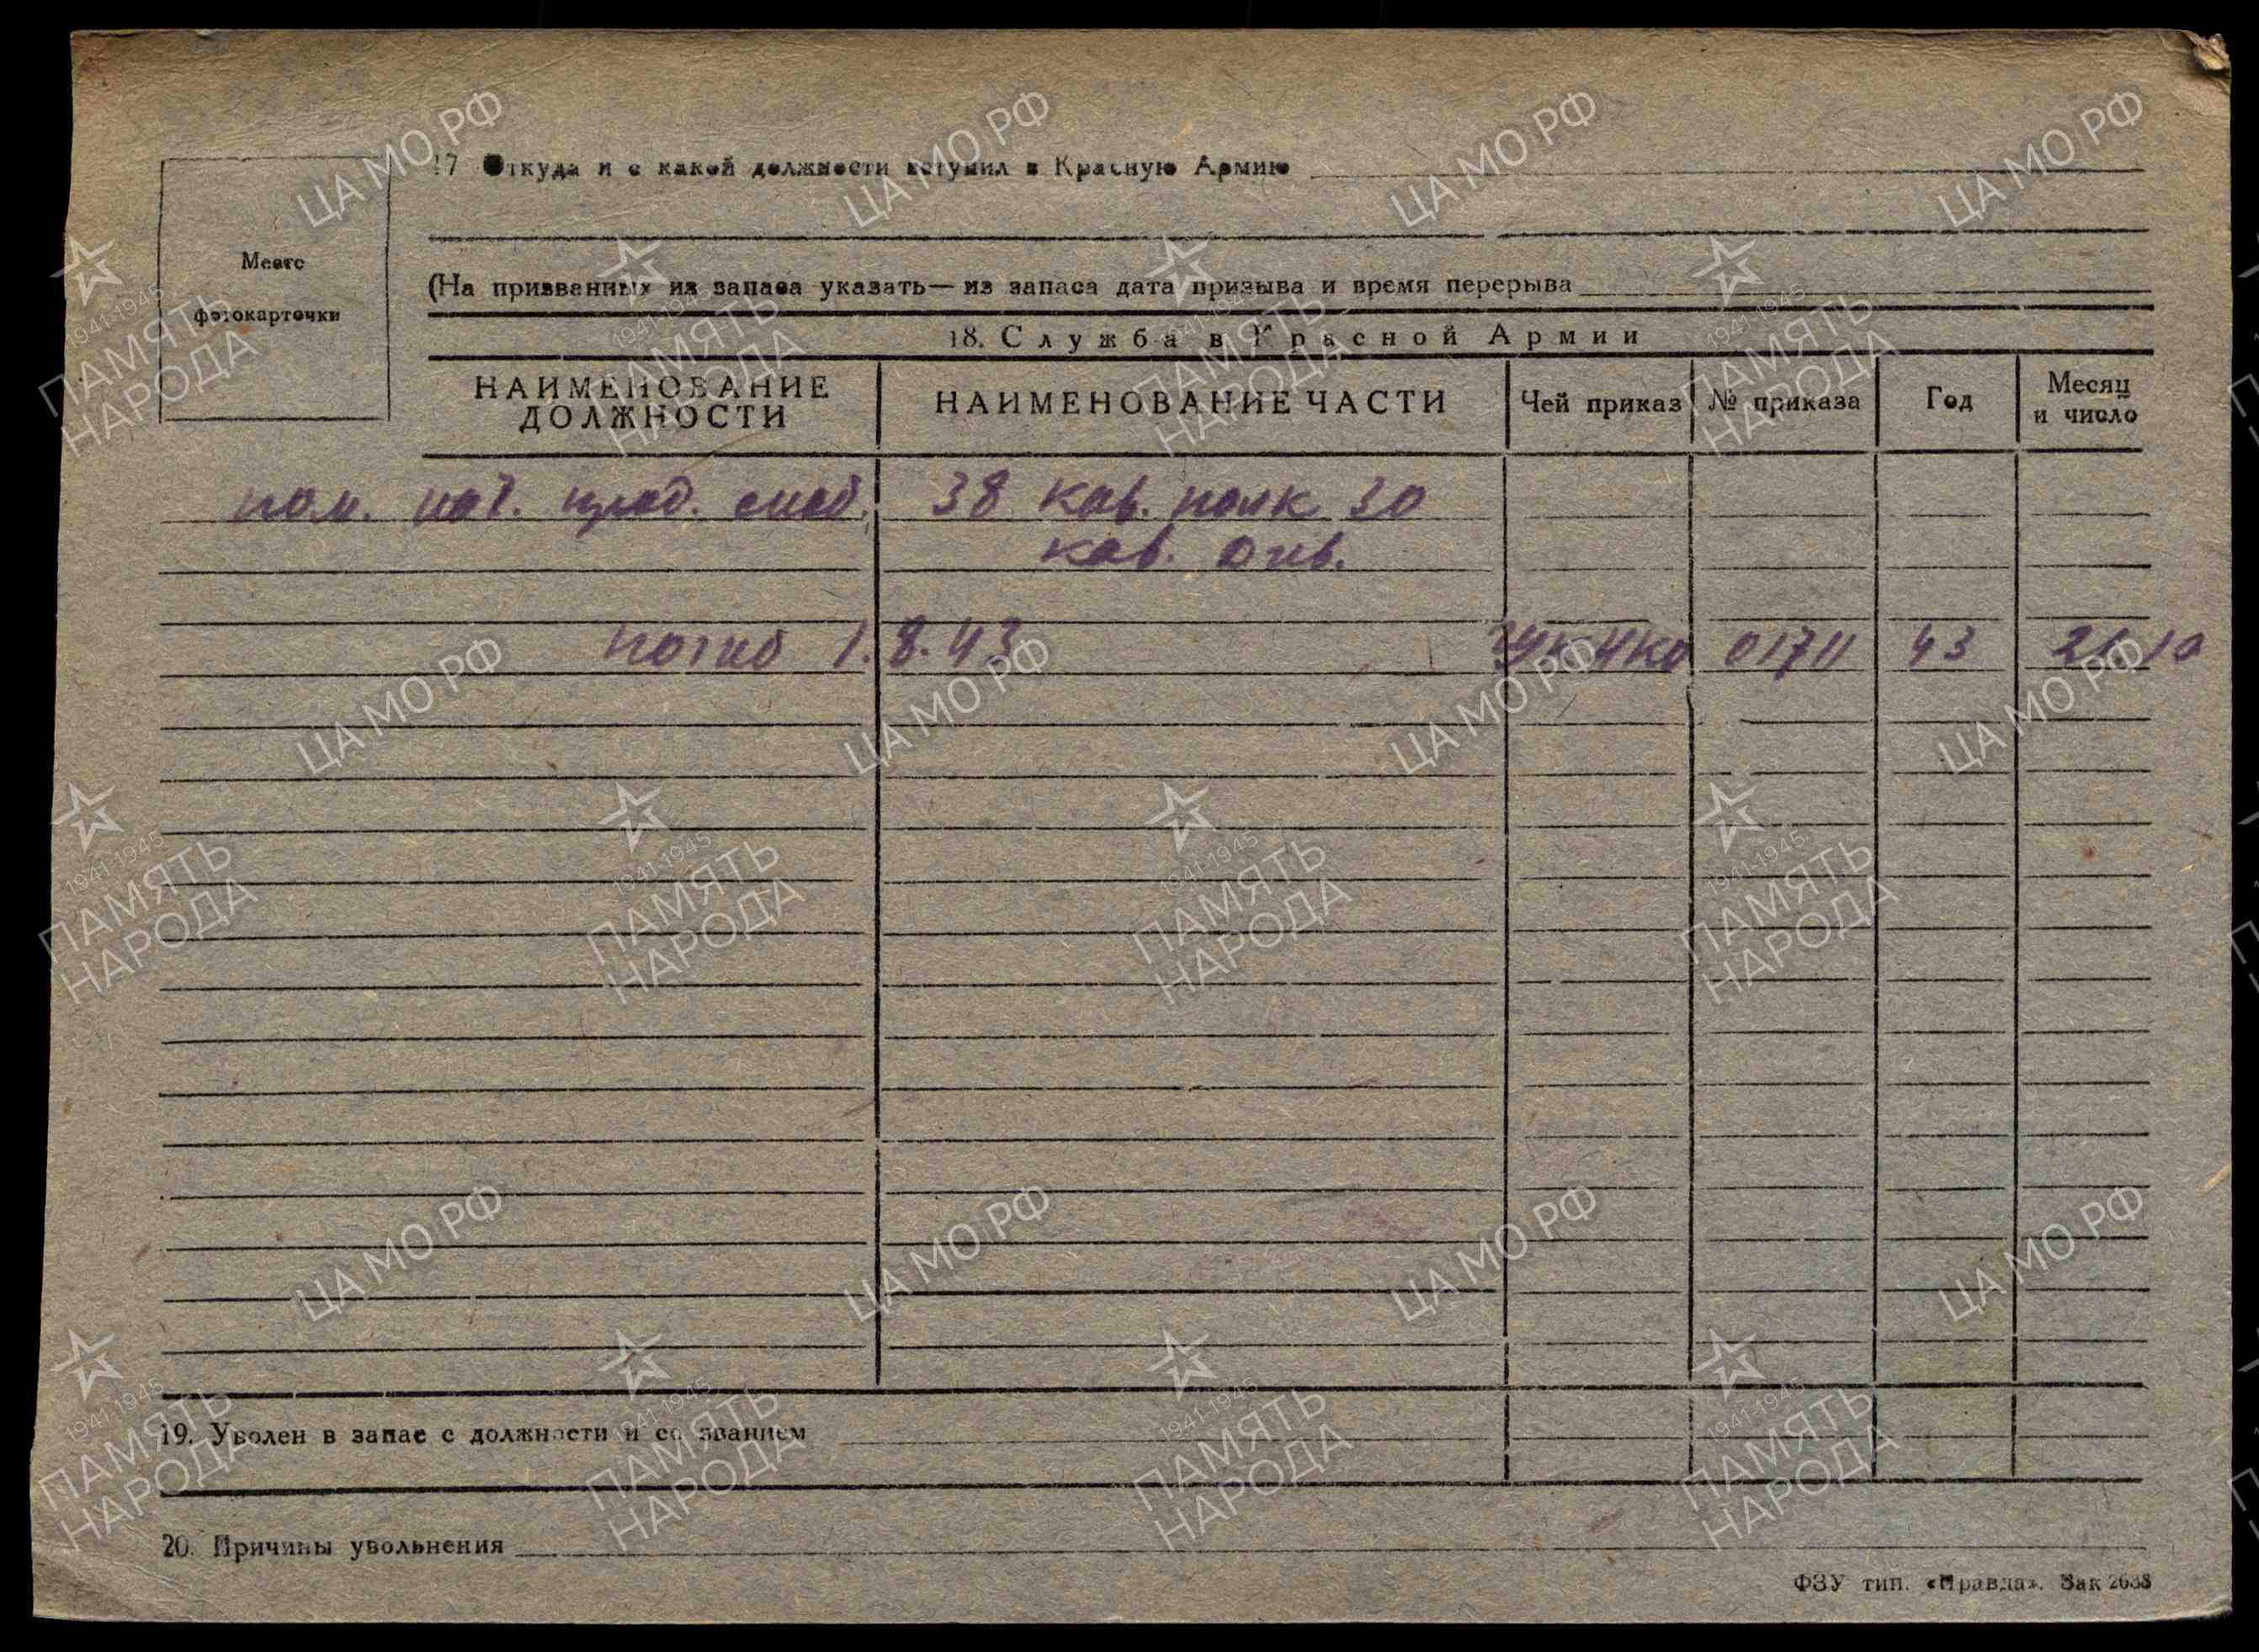 17 Откуда и с какой должности вступил в Красную Армию
Место
фотокарточки
(На призванных из запаса указать — из запаса дата призыва и время перерыва
18. Служба в Красной Армии
НАИМЕНОВАНИЕ ДОЛЖНОСТИ НАИМЕНОВАНИЕ ЧАСТИ Чей приказ № приказа Год Месяц и число
пом. нач. прод. снаб. 38 кав. полк 30
кав. див.
погиб 1.8.43 ГУК НКО 01711 43 21.10
19. Уволен в запас с должности и со званием
20. Причины увольнения
ФЗУ тип. «Правда». Зак 2638
ЦА МО РФ
1941-1945
ПАМЯТЬ
НАРОДА